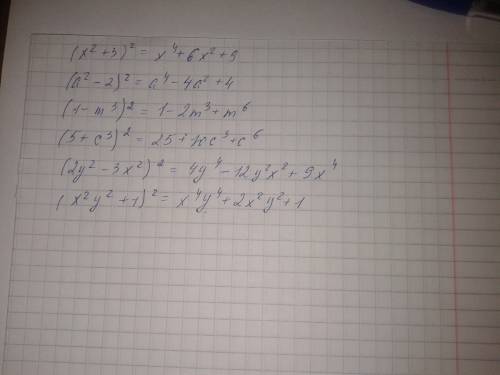 (x² + 3)² = x⁴ + 6x² + 9
(a² - 2)² = a⁴ - 4a² + 4
(1 - m³)² = 1 - 2m³ + m⁶
(5 + c³)² = 25 + 10c³ + c⁶
(2y² - 3x²)² = 4y⁴ - 12y²x² + 9x⁴
(x²y² + 1)² = x⁴y⁴ + 2x²y² + 1